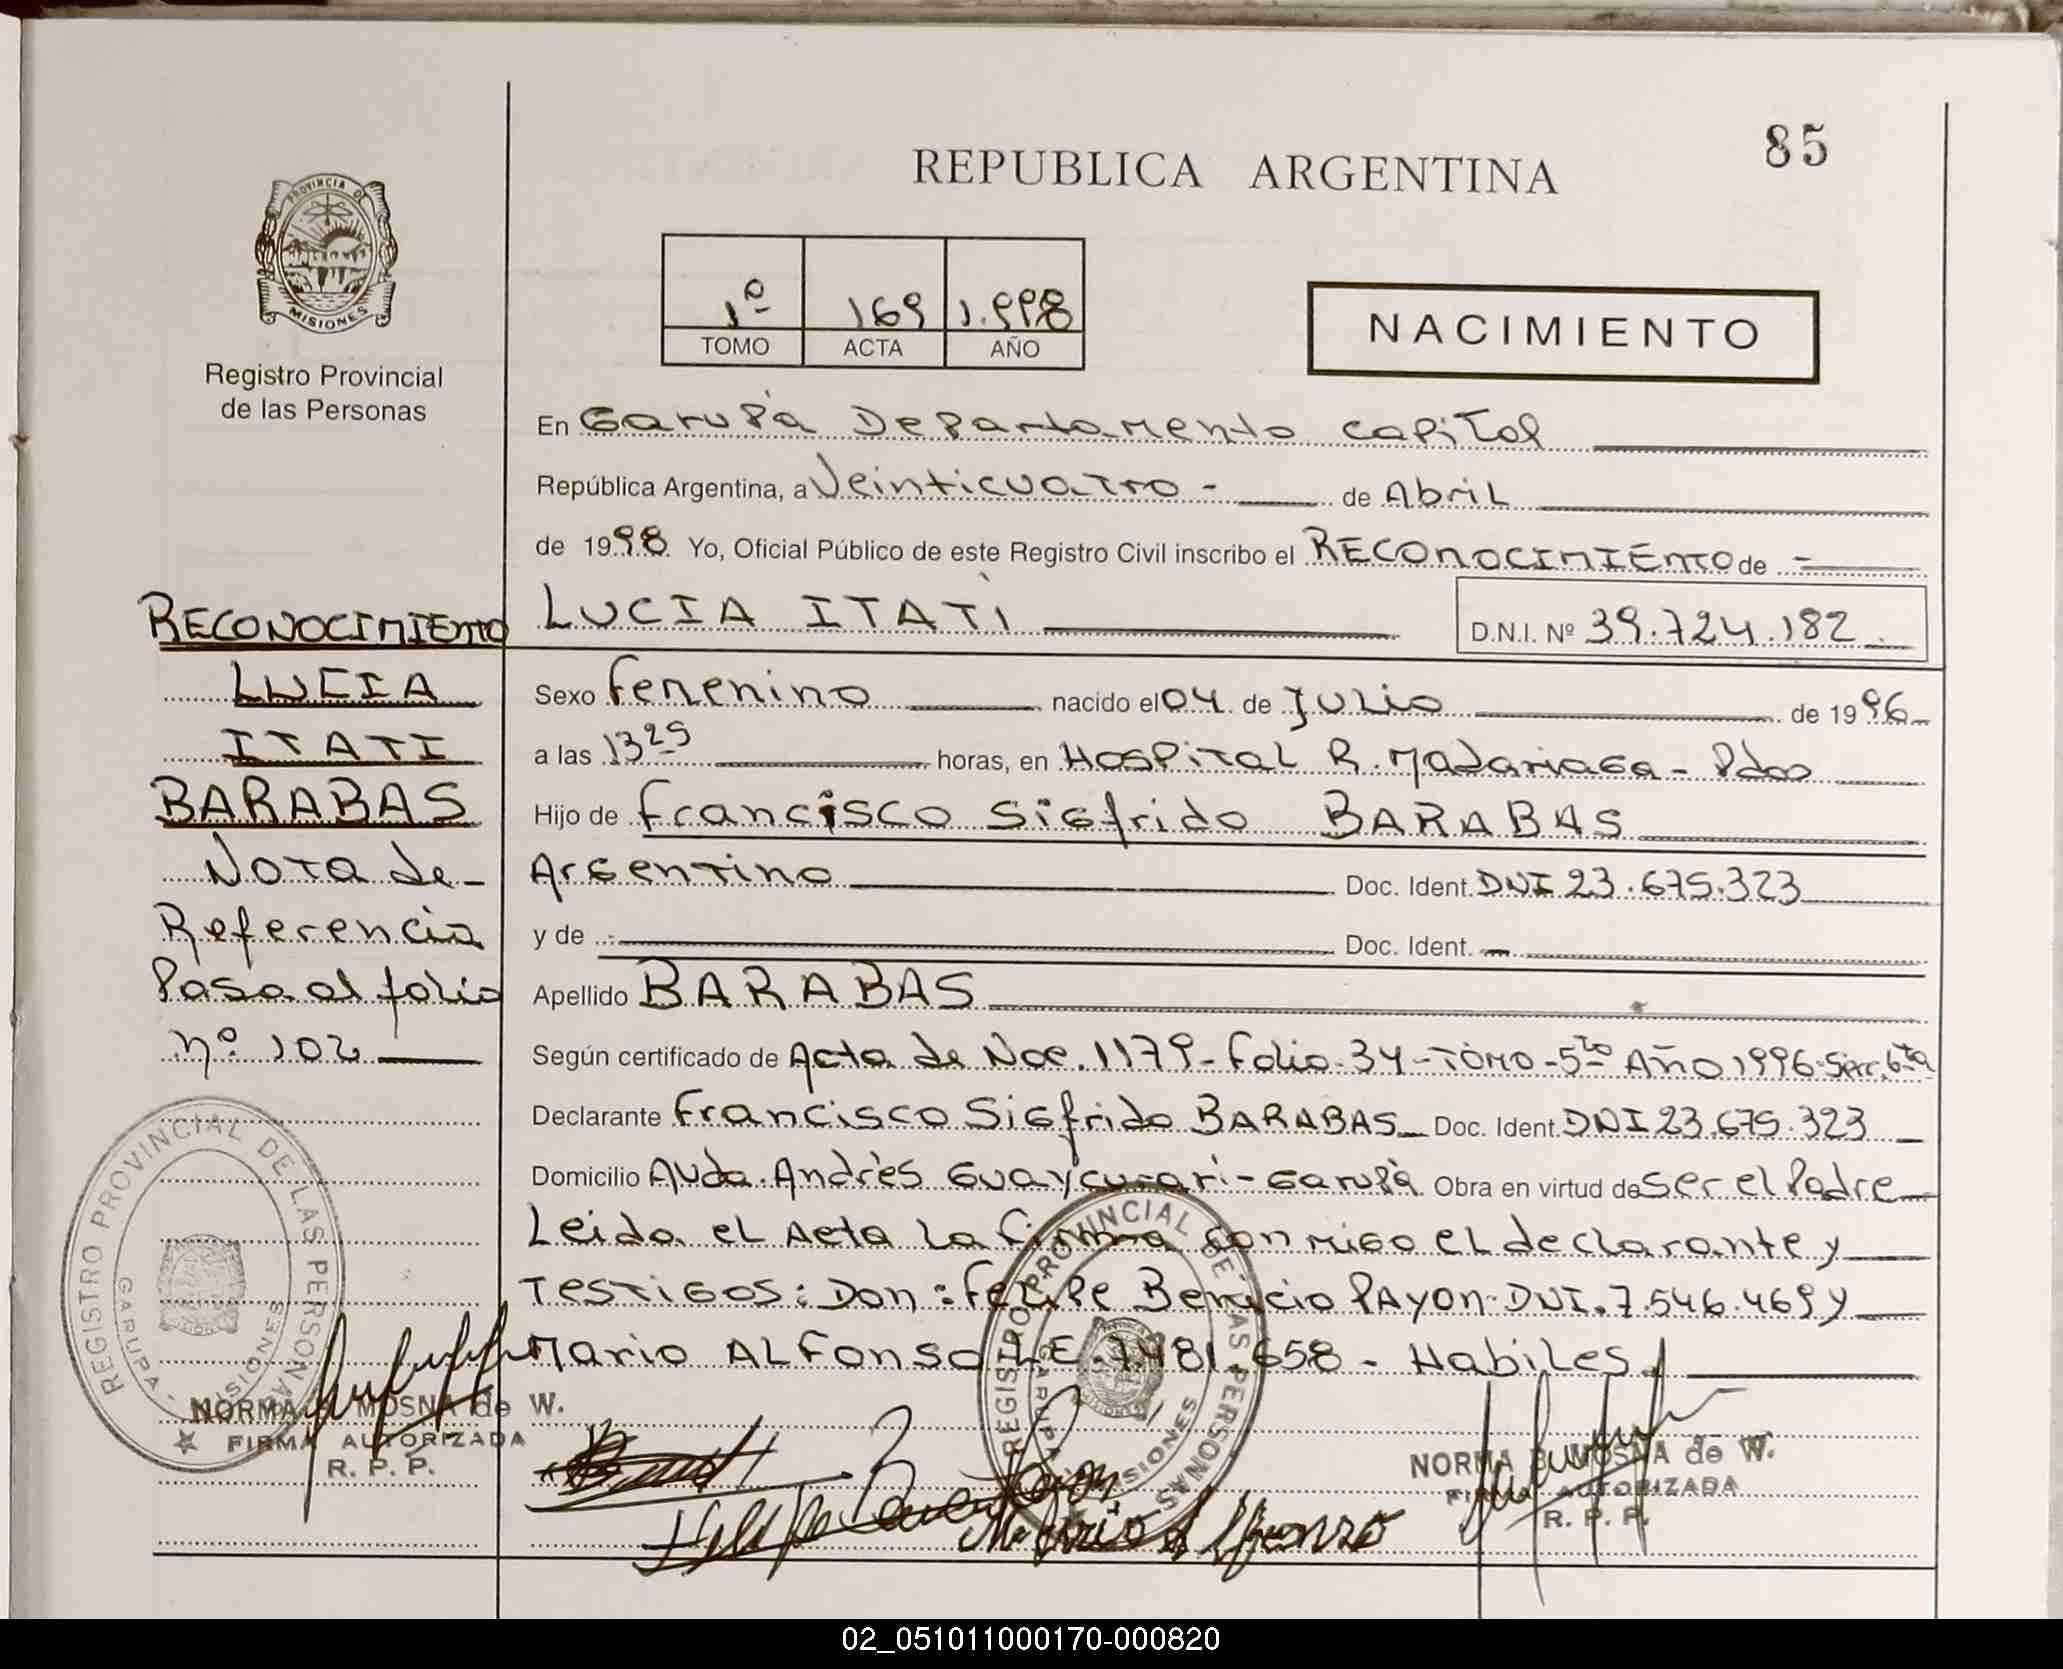 85
REPUBLICA ARGENTINA
PROVINCIA DE
MISIONES
Registro Provincial
de las Personas
1º 169 1.998
TOMO ACTA AÑO
NACIMIENTO
En Garupá Departamento Capital
República Argentina, a Veinticuatro - de Abril
de 1998. Yo, Oficial Público de este Registro Civil inscribo el RECONOCIMIENTO de -
LUCIA ITATI
D.N.I. Nº 39.724.182
Sexo Femenino nacido el 04 de Julio de 1996
a las 13 25 horas, en Hospital R. Madariaga - Pdas
Hijo de Francisco Sigfrido BARABAS
Argentino Doc. Ident. DNI 23.675.323
y de - Doc. Ident. -
Apellido BARABAS
Según certificado de Acta de Nac. 1179 - Folio - 34 - TOMO - 5to Año 1996 - Secc. 6ta
Declarante Francisco Sigfrido BARABAS Doc. Ident. DNI 23.675.323
Domicilio Avda. Andrés Guaycurari - Garupá Obra en virtud de Ser el Padre
Leida el Acta La firma conmigo el declarante y
Testigos: Don: Felipe Benicio PAYON - DNI. 7.546.469 y
Mario ALFONSO L.E. 7.481.658 - Habiles.
RECONOCIMIENTO
LUCIA
ITATI
BARABAS
Nota de -
Referencia
Pasa al folio
nº 102
REGISTRO PROVINCIAL DE LAS PERSONAS
GARUPA - MISIONES
NORMA B. MOSNA de W.
FIRMA AUTORIZADA
R. P. P.
REGISTRO PROVINCIAL DE LAS PERSONAS
GARUPA MISIONES
Mario Alfonzo
NORMA B. MOSNA de W.
FIRMA AUTORIZADA
R. P. P.
02_051011000170-000820